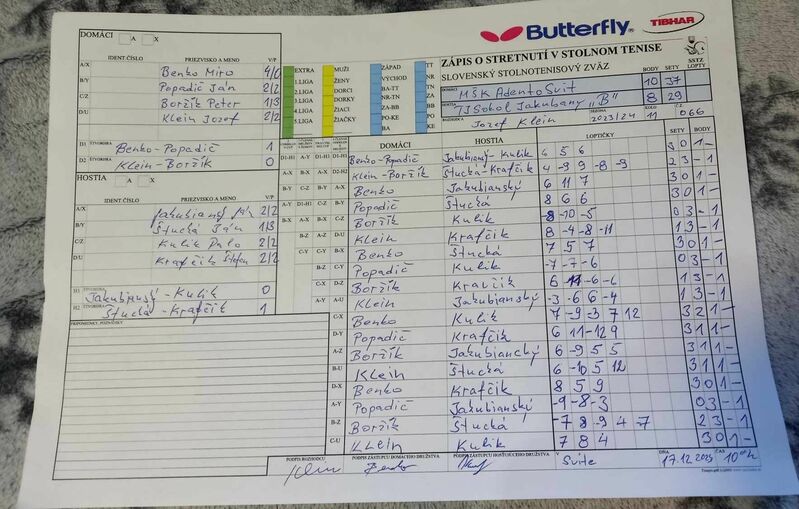 Butterfly
TIBHAR
ZÁPIS O STRETNUTÍ V STOLNOM TENISE
SLOVENSKÝ STOLNOTENISOVÝ ZVÄZ
SSTZ
BODY SETY LOPTY
DOMÁCI MŠK Adento Svit 10 37
HOSTIA TJ Sokol Jakubany "B" 8 29
ROZHODCA Jozef Klein 2023/24 KOLO 11 Č.Z. 066
DOMÁCI A X
IDENT ČÍSLO PRIEZVISKO A MENO V/P
A/X Benko Miro 4/0
B/Y Popadič Ján 2/2
C/Z Boržík Peter 1/3
D/U Klein Jozef 2/2
D1 ŠTVORHRA Benko-Popadič 1
D2 Klein-Boržík 0
HOSTIA A X
IDENT ČÍSLO PRIEZVISKO A MENO V/P
A/X Jakubianský Ján 2/2
B/Y Štucká Ján 1/3
C/Z Kulik Palo 2/2
D/U Krafčík Štefan 2/2
H1 ŠTVORHRA Jakubianský-Kulik 0
H2 ŠTVORHRA Štucká-Krafčík 1
PRIPOMIENKY, POZNÁMKY
EXTRA
1.LIGA
2.LIGA
3.LIGA
4.LIGA
5.LIGA
MUŽI
ŽENY
DORCI
DORKY
ŽIACI
ŽIAČKY
ZÁPAD
VÝCHOD
BA-TT
NR-TN
ZA-BB
PO-KE
BA
TT
NR
TN
ZA
BB
PO
KE
DOMÁCI HOSTIA LOPTIČKY SETY BODY
D1-H1 A-Y D1-H1 D1-H1 Benko-Popadič Jakubianský-Kulik 6 5 6 3 0 1 -
A-X B-X A-X D2-H2 Klein-Boržík Štucka-Krafčík 4 -9 9 -8 -9 2 3 - 1
B-Y C-Z B-Y A-X Benko Jakubianský 6 11 7 3 0 1 -
A-Y D1-H1 C-Z B-Y Popadič Štucká 8 6 6 3 0 1 -
B-X A-X B-X C-Z Boržík Kulik -8 -10 -5 0 3 - 1
B-Z A-Z D-U Klein Krafčík 8 -4 -8 -11 1 3 - 1
C-Y C-Y B-X Benko Štucká 7 5 7 3 0 1 -
B-Z C-Y Popadič Kulik -7 -7 -6 0 3 - 1
C-X D-Z Boržík Kravčík 6 -11 -6 -6 1 3 - 1
A-Y A-U Klein Jakubianský -3 -6 6 -4 1 3 - 1
C-X Benko Kulik 7 -9 -3 7 12 3 2 1 -
D-Y Popadič Krafčik 6 11 -12 9 3 1 1 -
A-Z Boržík Jakubiancký 6 -9 5 5 3 1 1 -
B-U Klein Štucká 6 -10 5 12 3 1 1 -
D-X Benko Krafčik 8 5 9 3 0 1 -
A-Y Popadič Jakubianský -9 -8 -3 0 3 - 1
B-Z Boržík Štucká -7 8 9 4 7 2 3 - 1
C-U Klein Kulik 7 8 4 3 0 1 -
PODPIS ROZHODCU PODPIS ZÁSTUPCU DOMÁCEHO DRUŽSTVA Benko PODPIS ZÁSTUPCU HOSŤUJÚCEHO DRUŽSTVA V Svite DŇA 17.12.2023 ČAS 10:00 h